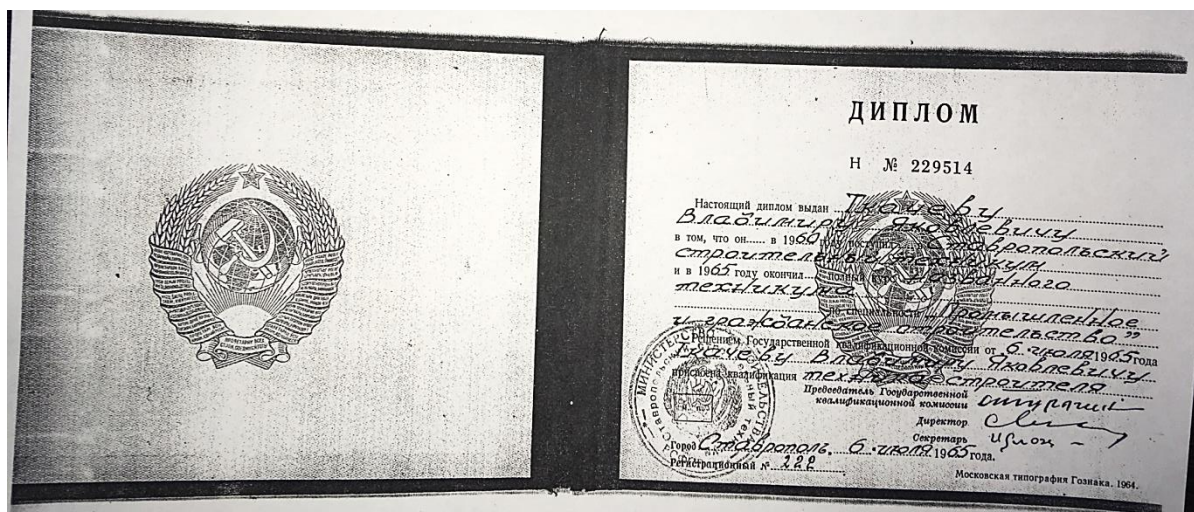 ДИПЛОМ
Н № 229514
Настоящий диплом выдан Ткачеву
Владимиру Яковлевичу
в том, что он...... в 1960 году поступил в Ставропольский
строительный техникум
и в 1965 году окончил полный курс названного
техникума
по специальности „Промышленное
и гражданское строительство"
Решением Государственной квалификационной комиссии от 6 июля 1965 года
Ткачеву Владимиру Яковлевичу
присвоена квалификация техника-строителя
Председатель Государственной
квалификационной комиссии
Директор
Секретарь
Город Ставрополь, 6 июля 1965 года.
Регистрационный № 222
Московская типография Гознака. 1964.